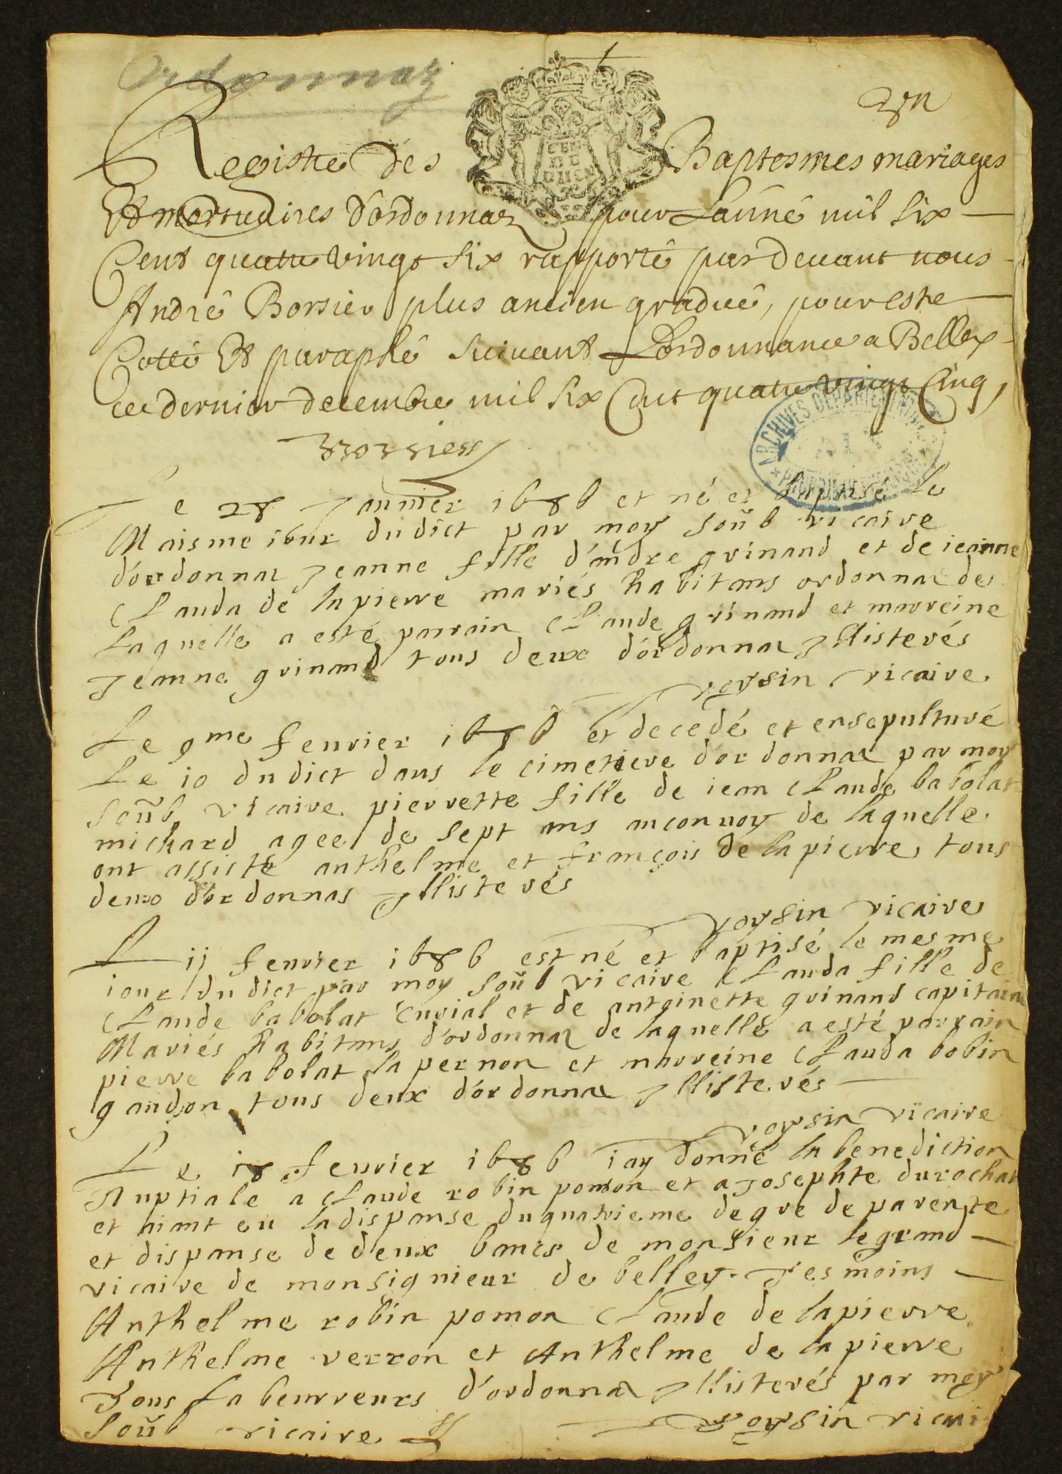 Ordonnaz
un
Registre des Baptesmes mariages
Et mortuaires d'ordonnaz pour Lanné mil six
Cent quatre vingt six rapporté par devant nous
André Borsier plus ancien gradué, pour estre
Cotté Et paraphé suivant Lordonnance a Belley
ce dernier decembre mil six Cent quatre vingt Cinq,
Borsier
ARCHIVES
Le 28 Janvier 1686 et né et baptisé le
Maisme iour dudict par moy soub vicaire
d'ordonnaz Jeanne fille d'andre grinand et de ieanne
Clauda de lapierre mariés habitans ordonnaz de
laquelle a esté parrain Claude grinand et marreine
Jeanne grinand tous deux d'ordonnaz Jllisterés
voysin vicaire
Le 9me fevrier 1686 et decedé et ensepulturé
Le 10 dudict dans le cimetiere d'ordonnaz par moy
soub vicaire pierrette fille de iean Claude babolat
michard agee de sept ans au convoy de laquelle
ont assisté anthelme et françois de lapierre tous
deux d'ordonnas Jllisterés
voysin vicaire
L 11 fevrier 1686 est né et baptisé le mesme
iour dudict par moy soub vicaire Clauda fille de
Claude babolat Curial et de antoinette grinand capitain
Mariés habitans d'ordonnaz de laquelle a esté parrain
pierre babolat la pernon et marreine Clauda bobin
gandon tous deux d'ordonnaz Jllisterés
voysin vicaire
Le 18 fevrier 1686 iay donné la benediction
Nuptiale a Claude robin pomon et a Josephte durochat
et aiant eu la dispanse du quatrieme degre de parente
et dispanse de deux bancs de monsieur le grand
vicaire de monsignieur de belley. Tesmoins
Anthelme robin pomon Claude de lapierre
Anthelme verron et Anthelme de lapierre
Tous labeurreurs d'ordonnaz Jllisterés par moy
soub vicaire
voysin vicai